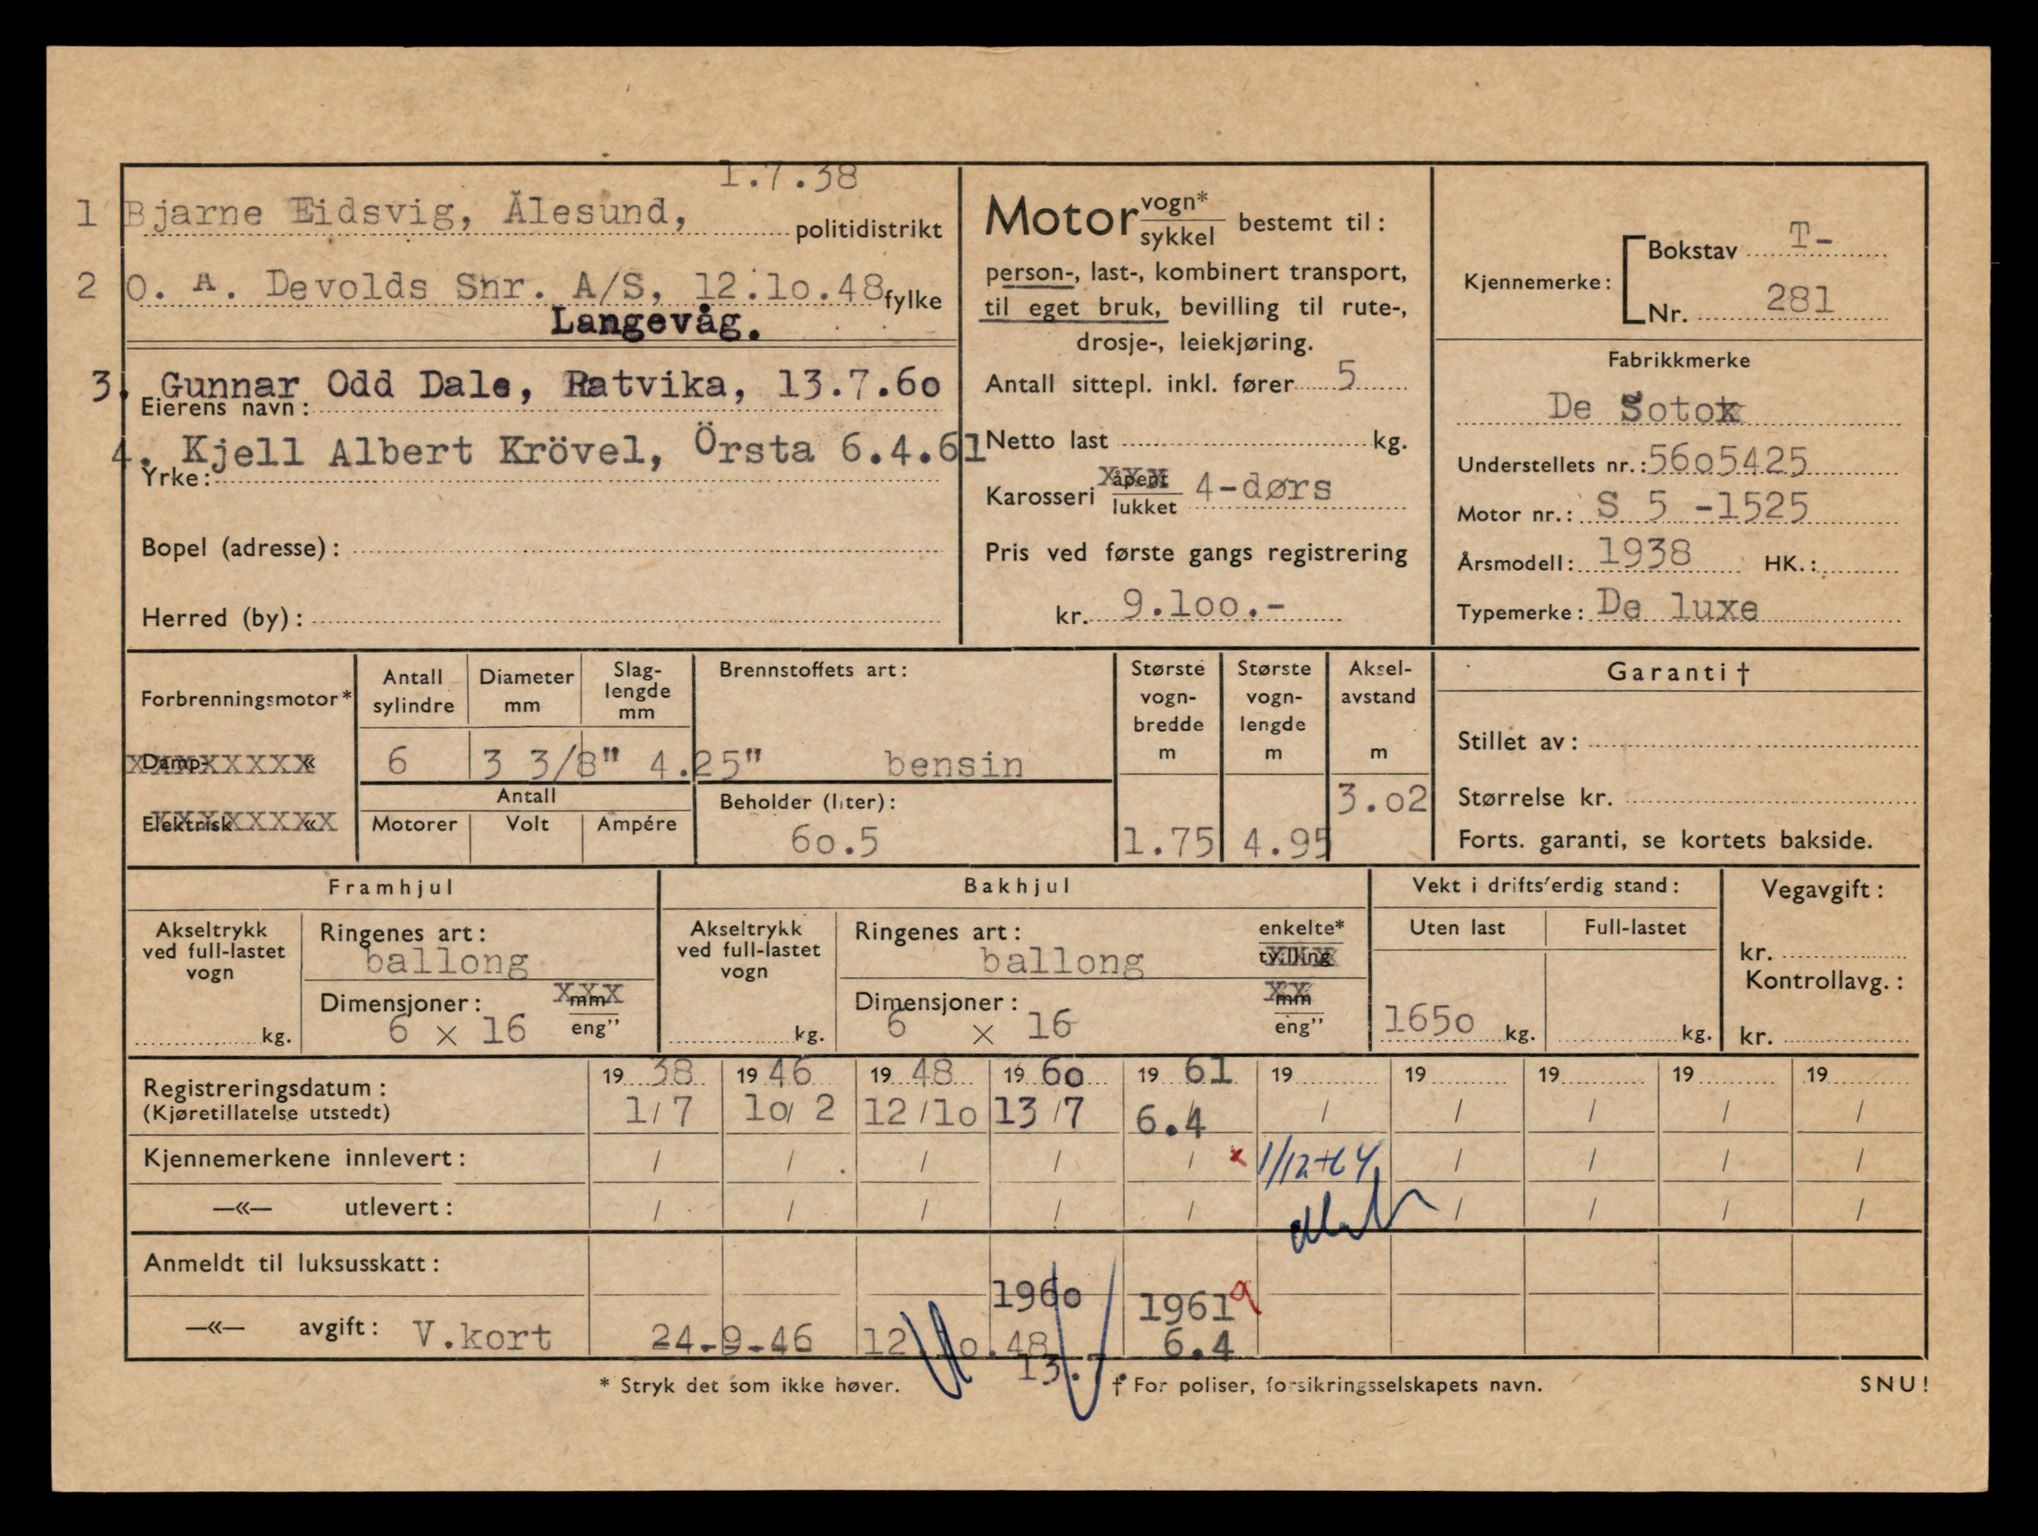 1.7.38
1 Bjarne Eidsvig, Ålesund, politidistrikt
2 O. A. Devolds Snr. A/S, 12.lo.48 fylke
Langevåg.
3. Gunnar Odd Dale, Ratvika, 13.7.6o
Eierens navn:
4. Kjell Albert Krövel, Örsta 6.4.61
Yrke:
Bopel (adresse):
Herred (by):
Motor vogn* / sykkel bestemt til:
person-, last-, kombinert transport,
til eget bruk, bevilling til rute-,
drosje-, leiekjøring.
Antall sittepl. inkl. fører 5
Netto last kg.
Karosseri åpent / lukket 4-dørs
Pris ved første gangs registrering
kr. 9.loo.-
Kjennemerke: Bokstav T-
Nr. 281
Fabrikkmerke
De Soto
Understellets nr.: 56o5425
Motor nr.: S 5 -1525
Årsmodell: 1938 HK.:
Typemerke: De luxe
Forbrenningsmotor*
Damp- «
Elektrisk «
Antall sylindre
6
Diameter mm
3 3/8"
Slag-
lengde
mm
4.25"
Antall
Motorer Volt Ampére
Brennstoffets art:
bensin
Beholder (liter):
6o.5
Største
vogn-
bredde
m
1.75
Største
vogn-
lengde
m
4.95
Aksel-
avstand
m
3.o2
Garanti †
Stillet av:
Størrelse kr.
Forts. garanti, se kortets bakside.
Framhjul
Akseltrykk
ved full-lastet
vogn
kg.
Ringenes art:
ballong
Dimensjoner: mm / eng"
6 x 16
Bakhjul
Akseltrykk
ved full-lastet
vogn
kg.
Ringenes art: enkelte* / tvilling
ballong
Dimensjoner: mm / eng"
6 x 16
Vekt i driftsferdig stand:
Uten last Full-lastet
165o kg. kg.
Vegavgift:
kr.
Kontrollavg.:
kr.
Registreringsdatum: 19 38 19 46 19 48 19 6o 19 61 19 19 19 19 19
(Kjøretillatelse utstedt) 1/7 lo/ 2 12/lo 13/7 6.4 / / / / /
Kjennemerkene innlevert: / / / / / x 1/12-64 / / / /
—«— utlevert: / / / / / / / / /
Anmeldt til luksusskatt:
196o 1961 a
—«— avgift: V.kort 24-9-46 12 lo.48 6.4
13.7.
* Stryk det som ikke høver. † For poliser, forsikringsselskapets navn. SNU!